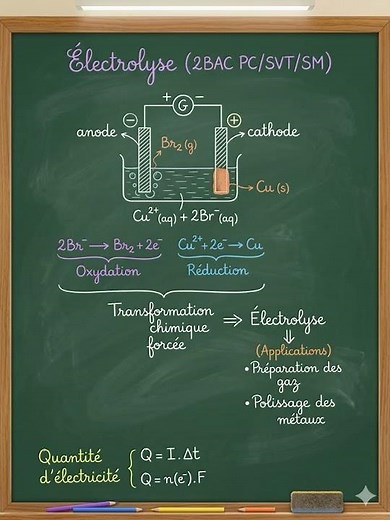 Électrolyse (2BAC PC/SVT/SM)
+ G −
− +
anode cathode
Br₂(g)
Cu(s)
Cu²⁺(aq) + 2Br⁻(aq)
2Br⁻ → Br₂ + 2e⁻ Cu²⁺ + 2e⁻ → Cu
Oxydation Réduction
Transformation ⇒ Électrolyse
chimique
forcée
⇓
(Applications)
• Préparation des
gaz
• Polissage des
métaux
Quantité
d'électricité
Q = I.Δt
Q = n(e⁻).F